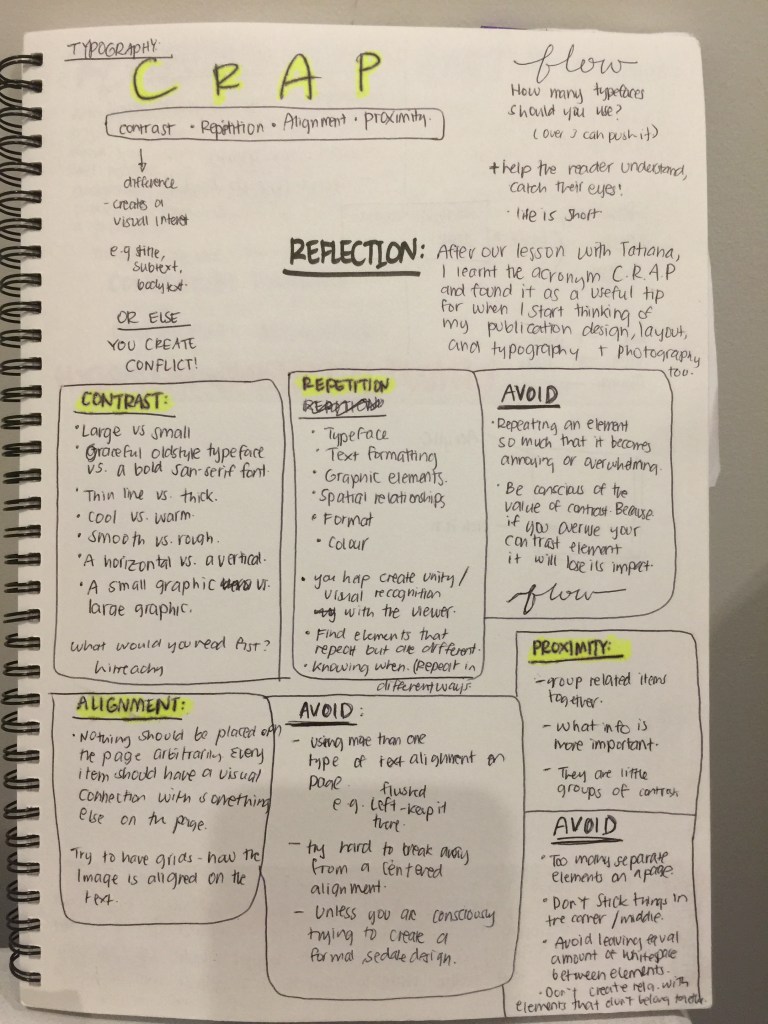 TYPOGRAPHY:
C R A P
contrast • Repetition • Alignment • proximity.
difference
- creates a
visual interest
e.g. title,
subtext,
body text.
OR ELSE
YOU CREATE
CONFLICT!
flow
How many typefaces
should you use?
(over 3 can push it)
+ help the reader understand,
catch their eyes!
- life is short
REFLECTION:
After our lesson with Tatiana,
I learnt the acronym C.R.A.P
and found it as a useful tip
for when I start thinking of
my publication design, layout,
and typography + photography
too.
CONTRAST:
• Large vs small
• Graceful oldstyle typeface
vs. a bold san-serif font.
• Thin line vs. thick.
• Cool vs. warm.
• smooth vs. rough.
• A horizontal vs. a vertical.
• A small graphic vs.
large graphic.
what would you read first?
hirreachy
REPETITION
REPETITION
• Typeface
• Text formatting
• Graphic elements.
• Spatial relationships
• Format
• Colour
• you help create unity/
visual recognition
with the viewer.
• Find elements that
repeat but are different.
• knowing when. (Repeat in
different ways.
AVOID
• Repeating an element
so much that it becomes
annoying or overwhelming.
• Be conscious of the
value of contrast. Because
if you overuse your
contrast element
it will lose its impact.
flow
ALIGNMENT:
• Nothing should be placed on
the page arbitrarily. Every
item should have a visual
connection with something
else on the page.
Try to have grids - how the
image is aligned on the
text.
AVOID:
- using more than one
type of text alignment on
page.
flushed
e.g. Left - keep it
there.
- try hard to break away
from a centered
alignment.
- Unless you are consciously
trying to create a
formal, sedate design.
PROXIMITY:
- group related items
together.
- what info is
more important.
- They are little
groups of contrast
AVOID
• Too many separate
elements on a page.
• Don't stick things in
the corner / middle.
• Avoid leaving equal
amount of whitespace
between elements.
- Don't create rela. with
elements that don't belong together.